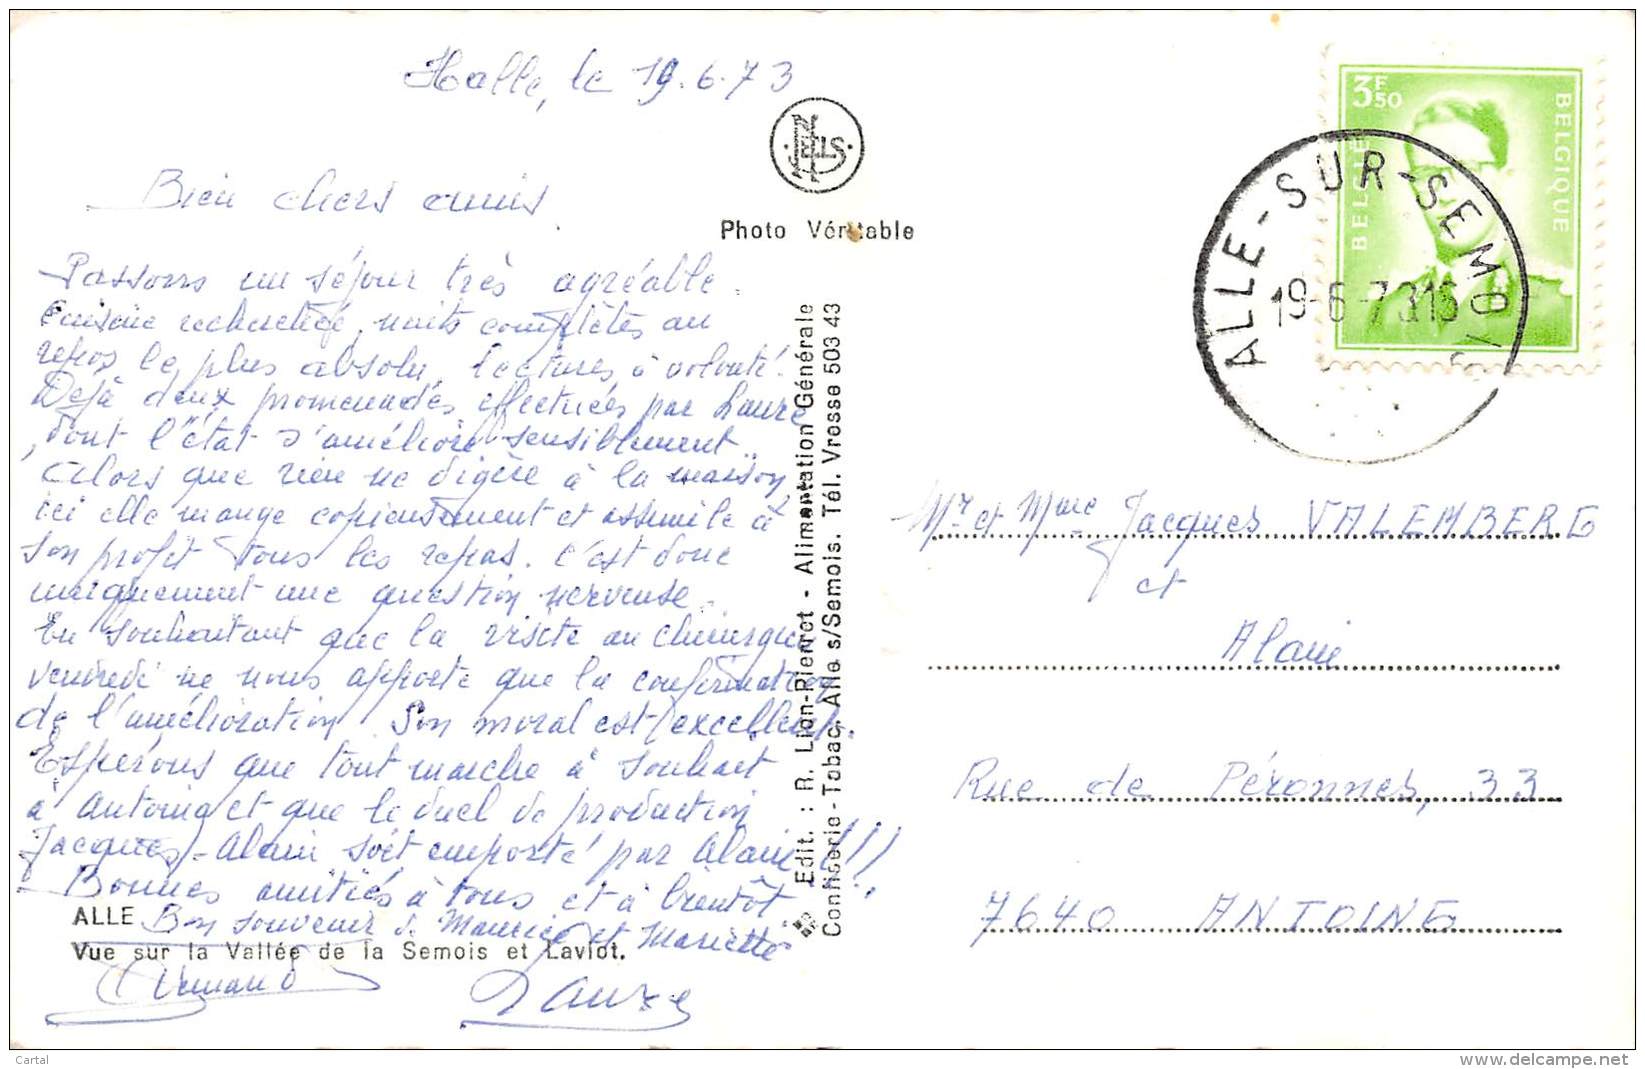 Halle, le 19.6.73
Bien chers amis
Passons un séjour très agréable.
Cuisine recherchée, nuits complètes au
repos le plus absolu, lectures à volonté.
Déjà deux promenades effectuées par Laure
, dont l'état s'améliore sensiblement.
Alors que rien ne digère à la maison,
ici elle mange copieusement et assimile à
son profit tous les repas. C'est donc
uniquement une question nerveuse.
En souhaitant que la visite au chirurgien
vendredi ne nous apporte que la confirmation
de l'amélioration. Son moral est excellent.
Espérons que tout marche à souhait
à Antoing et que le duel de production
Jacques-Alain soit emporté par Alain !!!
Bonnes amitiés à tous et à bientôt
Bon souvenir de Maurice et Mariette
Armand
Laure
ALLE
Vue sur la Vallée de la Semois et Laviot.
NELS
Photo Véritable
Edit. : R. Lion-Pierret - Alimentation Générale
Confiserie-Tabac, Alle s/Semois. Tél. Vresse 503 43
3F50
BELGIË
BELGIQUE
ALLE-SUR-SEMOIS
19-6-73 15
Mr et Mme Jacques VALEMBERG
et
Alain
Rue de Péronnes, 33
7640 ANTOING
Cartal
www.delcampe.net